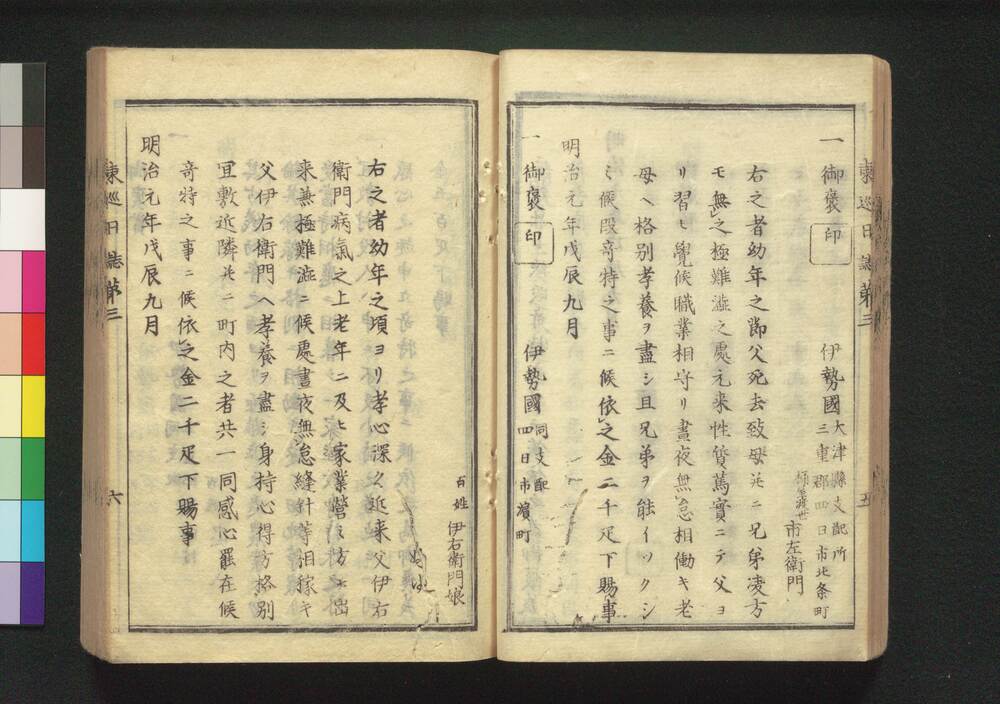 東巡日誌第三
五
一 御褒 印 伊勢國 大津縣支配所
三重郡四日市北条町
渡世 市左衛門
右之者幼年之節父死去致母并ニ兄弟凌方
モ無之極難澁之處元来性質篤實ニテ父ヨ
リ習ヒ覺候職業相守リ晝夜無怠相働キ老
母ヘ格別孝養ヲ盡シ且兄弟ヲ能イツクシ
ミ候段奇特之事ニ候依之金二千疋下賜事
明治元年戊辰九月
一 御褒 印 伊勢國 同支配
四日市濱町
百姓 伊右衛門娘
右之者幼年之頃ヨリ孝心深ク近来父伊右
衛門病氣之上老年ニ及ヒ家業營ミ方モ出
来兼極難澁ニ候處晝夜無怠縫針等相稼キ
父伊右衛門ヘ孝養ヲ盡シ身持心得方格別
宜敷近隣并ニ町内之者共一同感心罷在候
奇特之事ニ候依之金二千疋下賜事
明治元年戊辰九月
東巡日誌第三
六